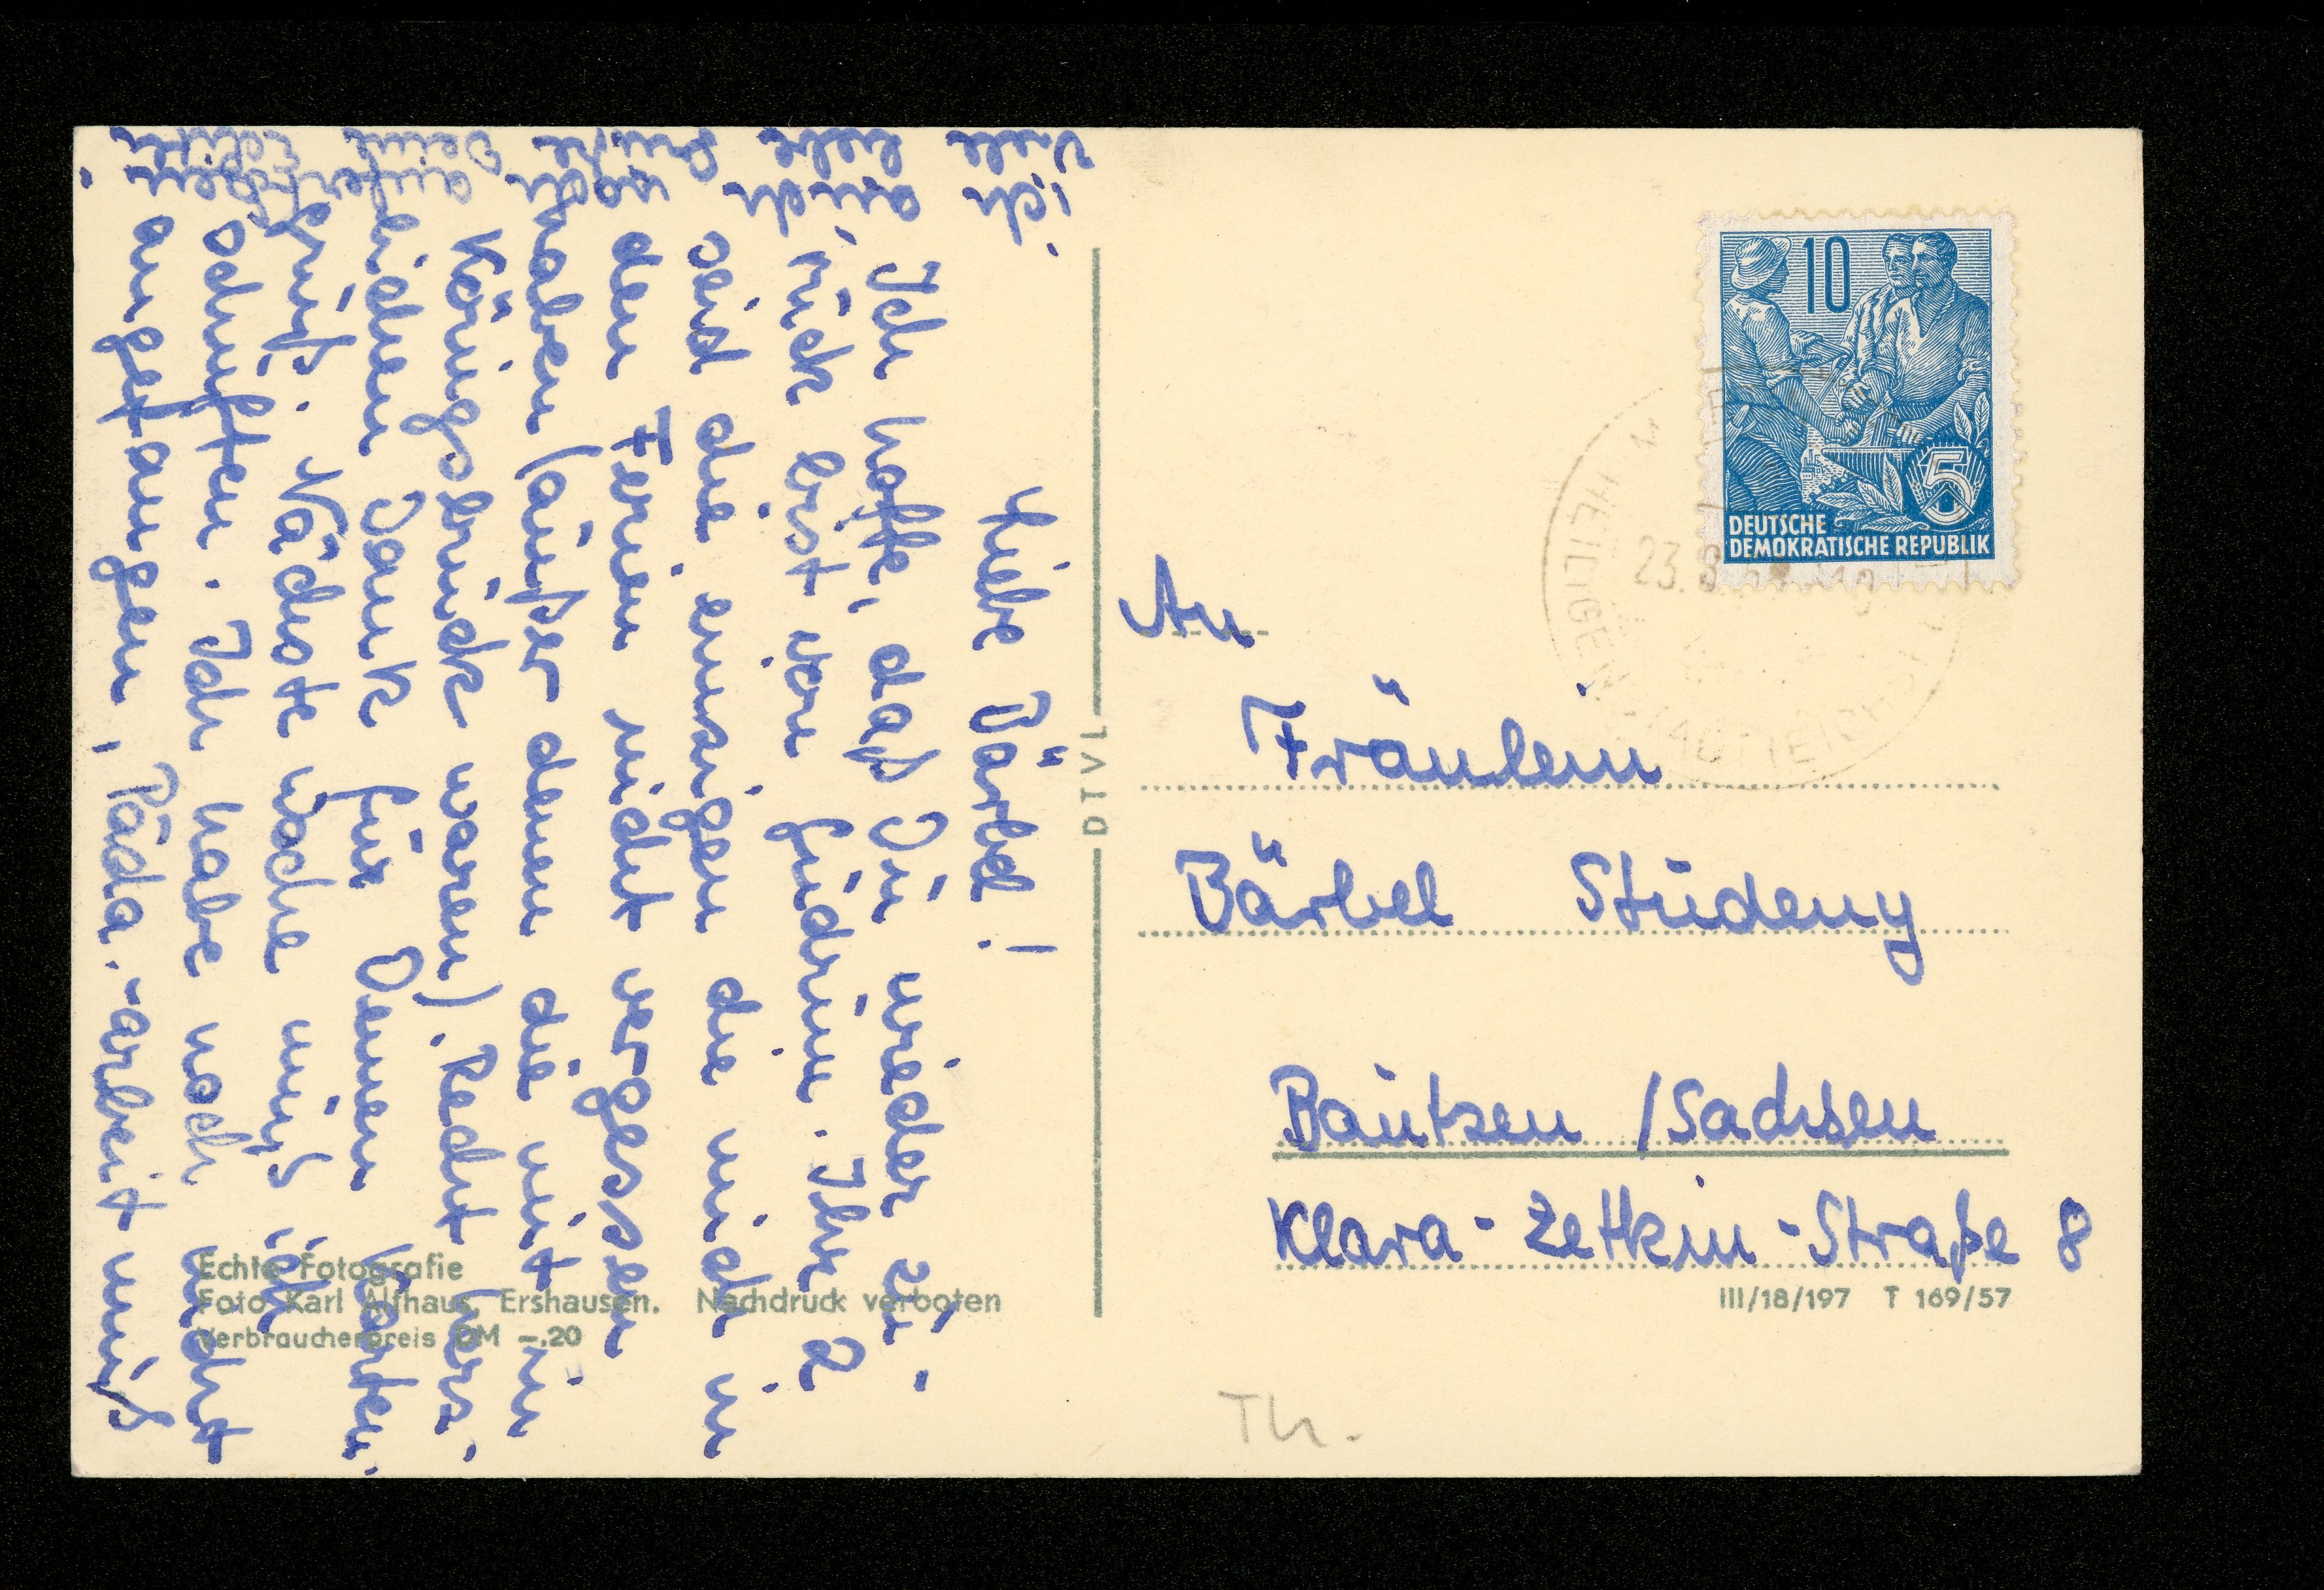 Liebe Bärbel!
Ich hoffe, daß Du wieder zu-
rück bist von Gudrun. Ihr 2
seid die einzigen die mich in
den Ferien nicht vergessen
haben (außer denen die mit in
Königsbrück waren). Recht herz-
lichen Dank für Deinen Karten-
gruß. Nächste Woche muß ich
schuften. Ich habe noch nicht
angefangen, Päda.-arbeit muß
ich auch noch anfertigen.
Viele liebe Grüße Deine Edith
Echte Fotografie
Foto Karl Alfhaus, Ershausen. Nachdruck verboten
Verbraucherpreis DM -.20
DTVL
10
5
DEUTSCHE
DEMOKRATISCHE REPUBLIK
23.8
An
Fräulein
Bärbel Studeny
Bautzen /Sachsen
Klara-Zetkin-Straße 8
III/18/197 T 169/57
Th.